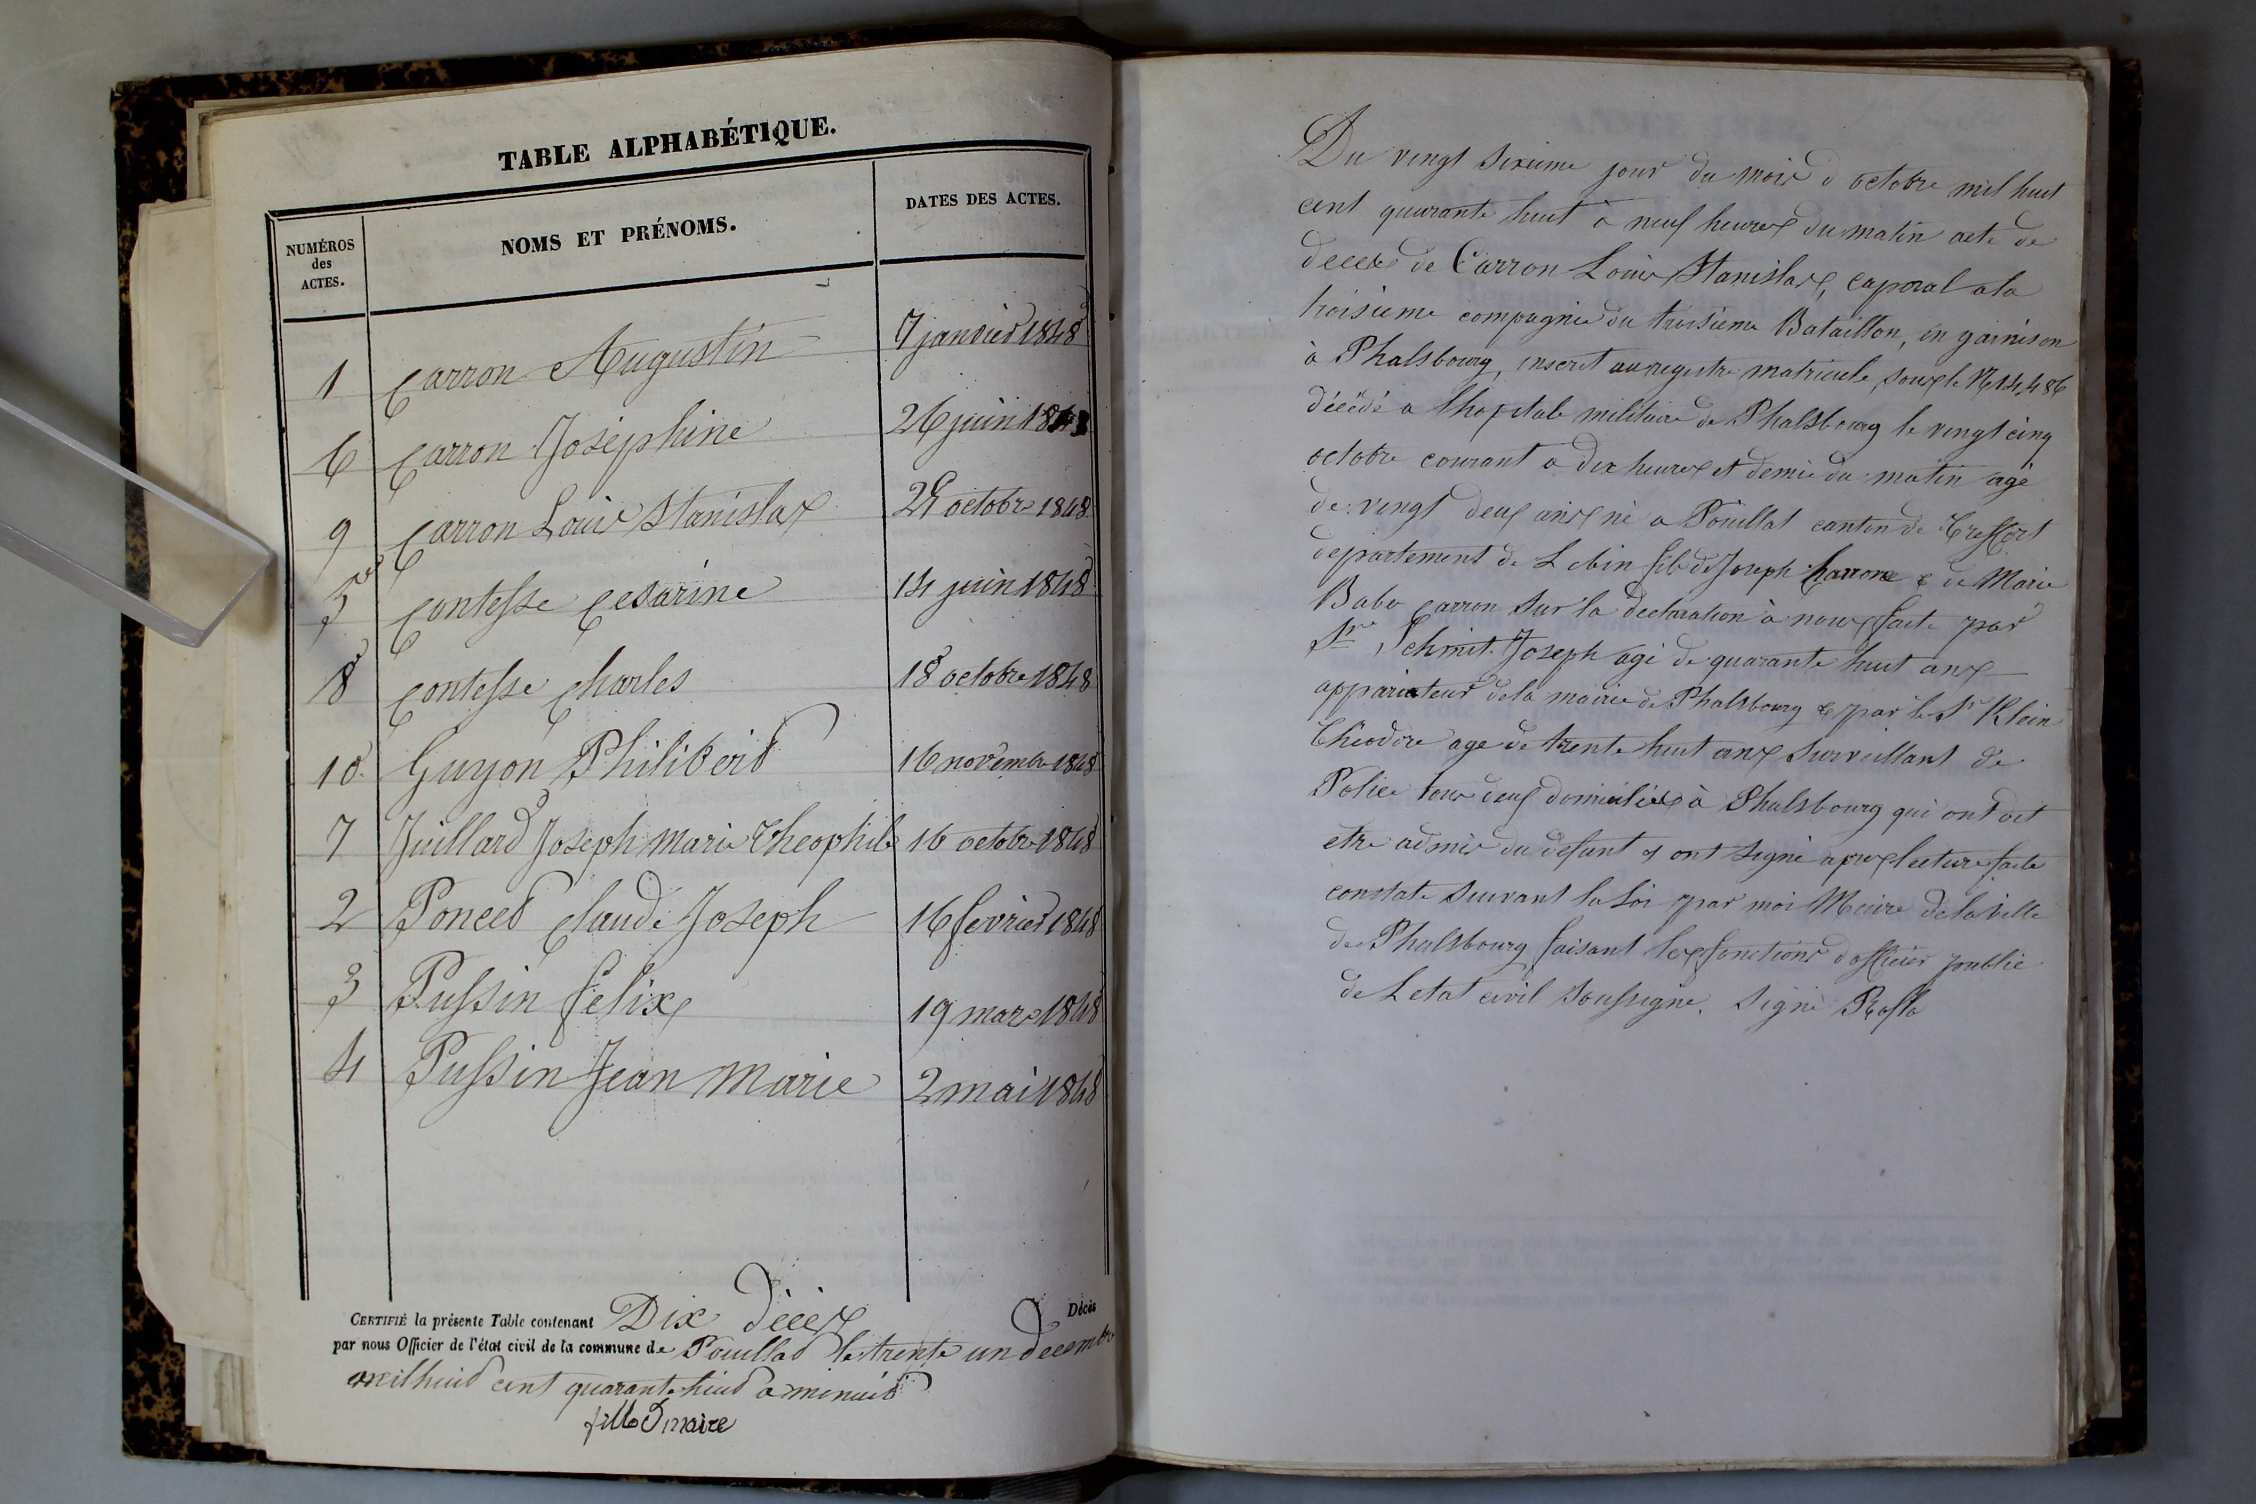 TABLE ALPHABÉTIQUE.
NUMÉROS des ACTES. NOMS ET PRÉNOMS. DATES DES ACTES.
1 Carron Augustin 7 janvier 1848
6 Carron Josephine 26 juin 1848
9 Carron Louis Stanislas octobre 1848
5 Contesse Cesarine 14 juin 1848
8 Contesse Charles 18 octobre 1848
10 Guyon Philibert 16 novembre 1848
7 Juillard Joseph Marie Theophile 16 octobre 1848
2 Poncet Claude Joseph 16 fevrier 1848
3 Pussin felix 19 mars 1848
4 Pussin Jean Marie 2 mai 1848
CERTIFIÉ la présente Table contenant Dix décès Décès
par nous Officier de l'état civil de la commune de Pouillat le trente un decembre
mil huit cent quarante huit a minuit
maire
Du vingt sixieme jour du mois d octobre mil huit
cent quarante huit à neuf heures du matin acte de
deces de Carron Louis Stanislas, caporal a la
troisieme compagnie du troisieme Bataillon, en garnison
à Phalsbourg, inscrit au registre matricule sous le N 14486
décédé a lhopitale militaire de Phalsbourg le vingt cinq
octobre courant a dix heures et demie du matin agé
de vingt deux ans né a Pouillat canton de Treffort
departement de L Ain fils de Joseph Carron & de Marie
Carron sur la declaration à nous faite par
Sr Schmit Joseph agé de quarante huit ans
appariateur de la mairie de Phalsbourg & par le Sr Klein
Théodore age de trente huit ans surveillant de
Police tous deux domiciliés à Phalsbourg qui ont dit
etre admis du defunt et ont signé apres lecture faite
constate suivant la Loi par moi Maire de la ville
de Phalsbourg faisant les fonctions d officier public
de L etat civil soussigne. Signé